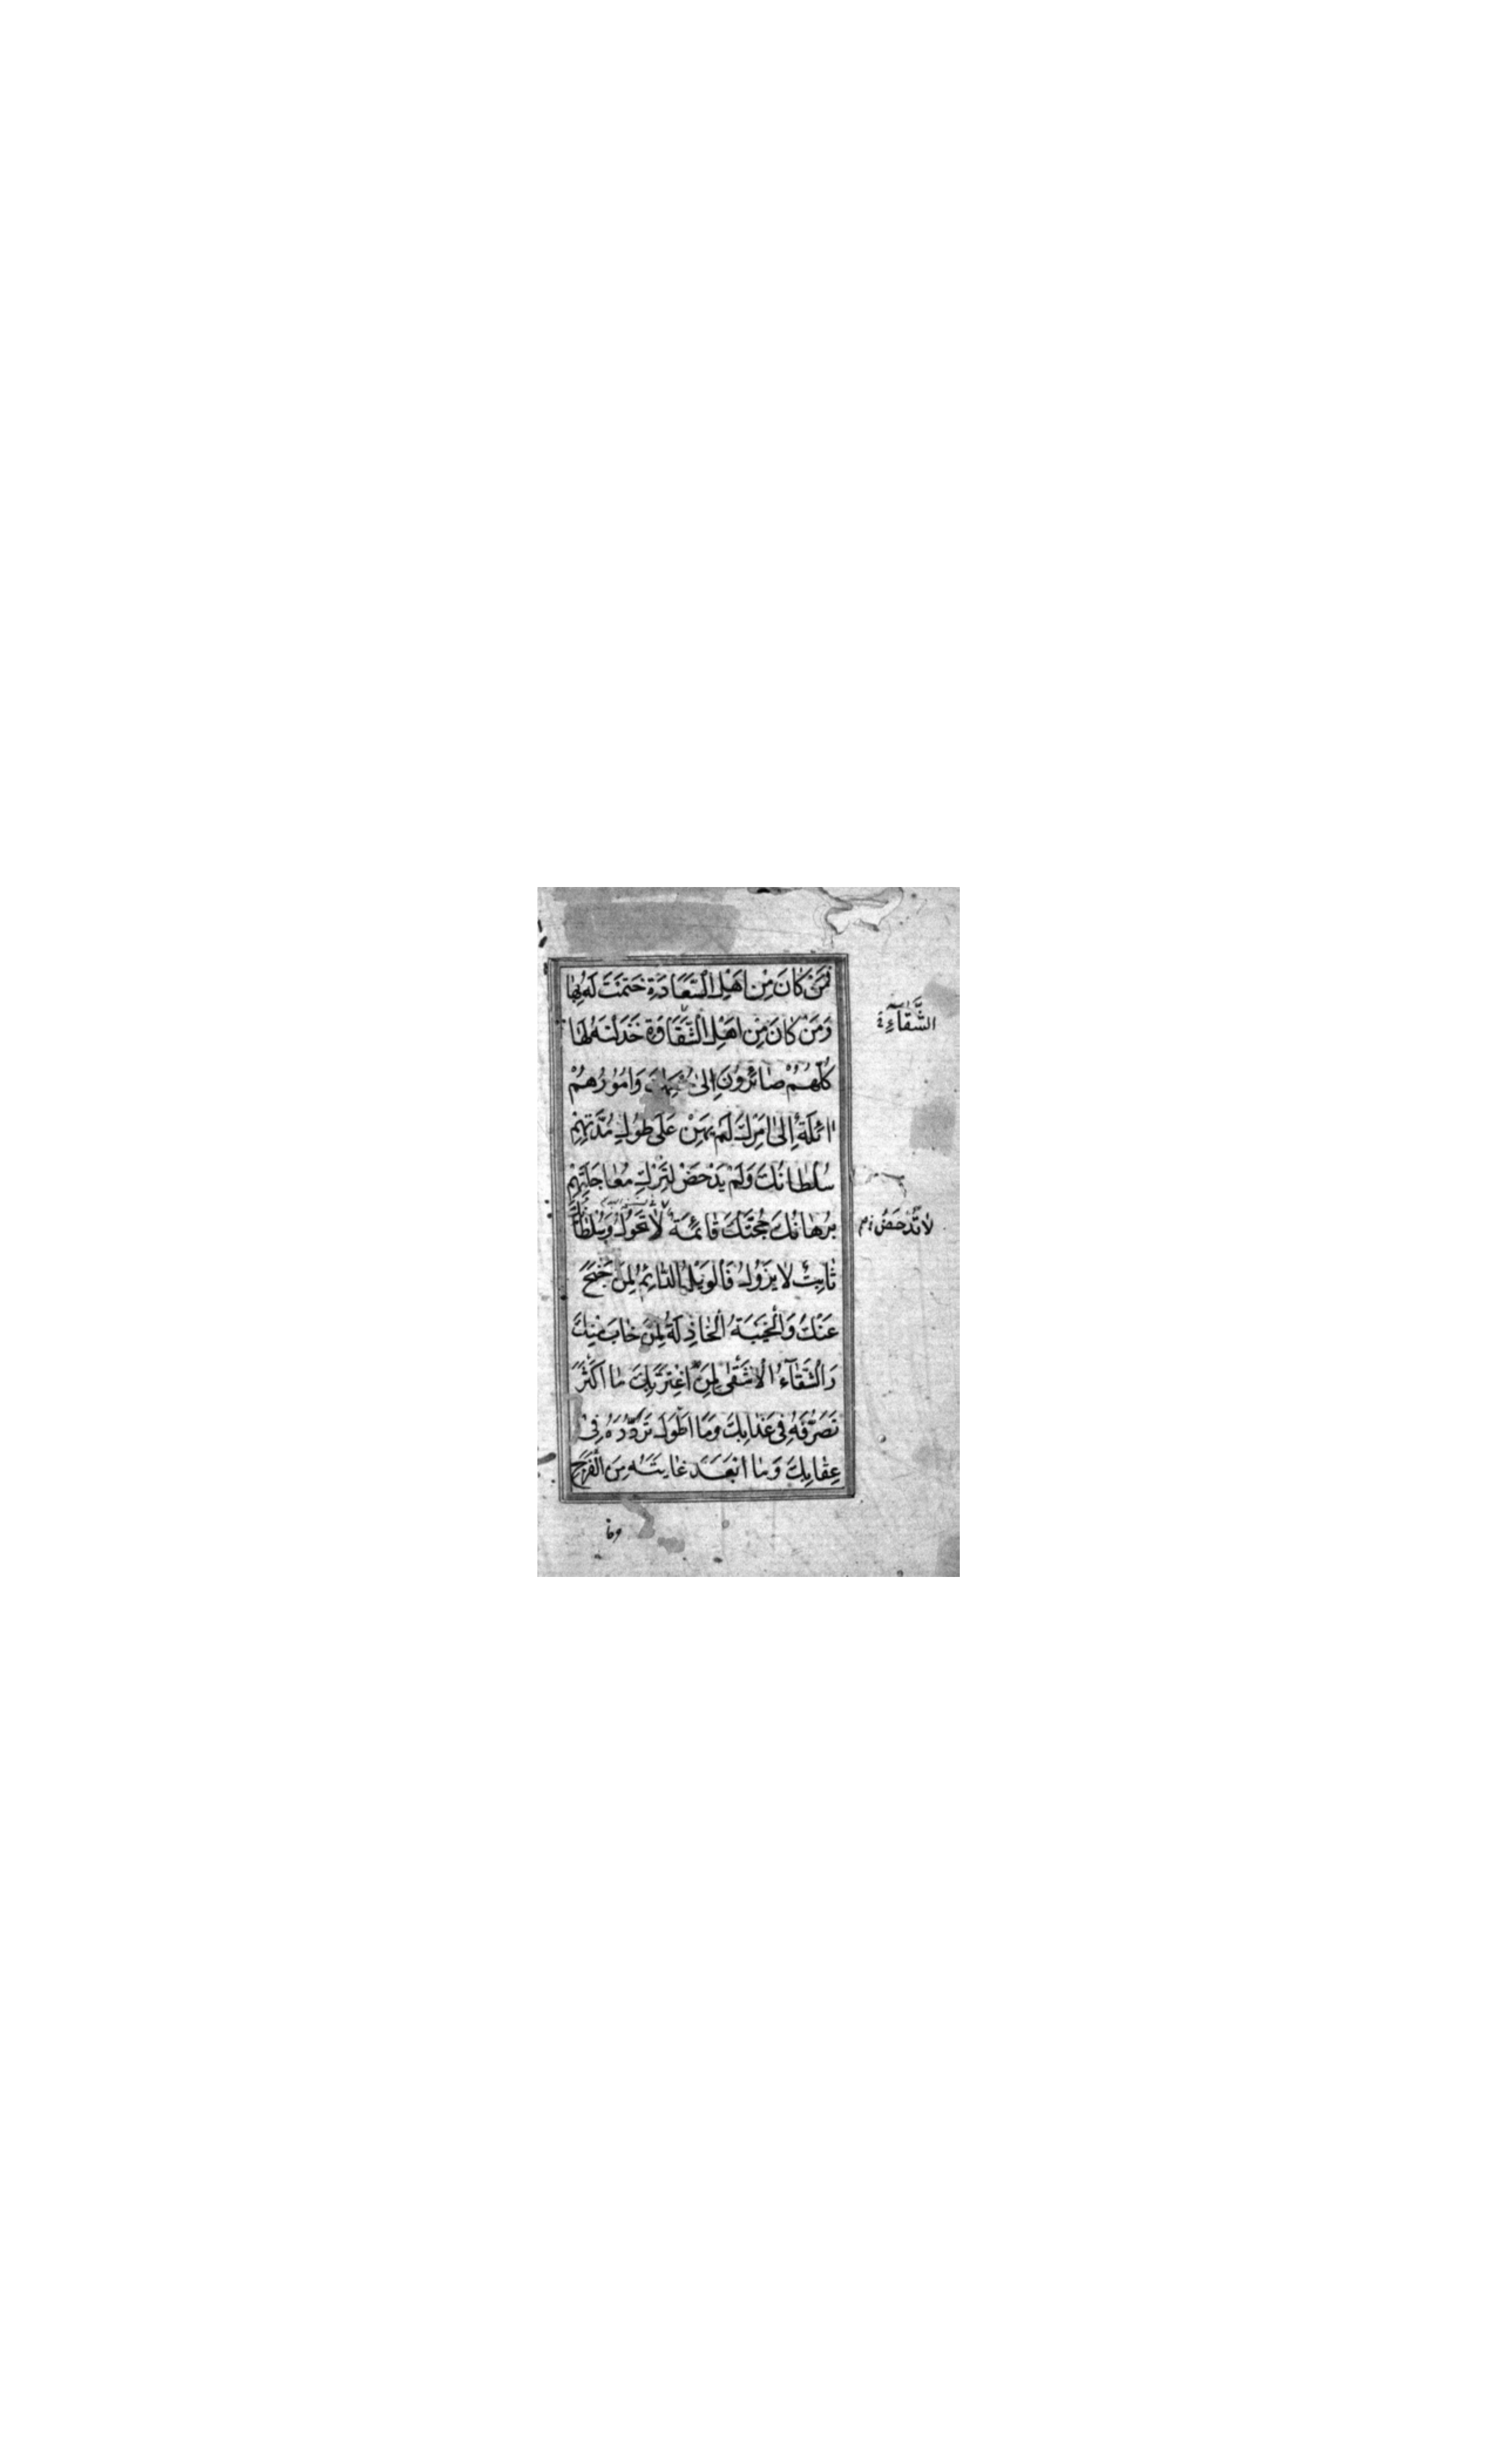 فَمَنْ كَانَ مِنْ اَهْلِ السَّعَادَةِ خَتَمْتَ لَهُ بِهَا
وَمَنْ كَانَ مِنْ اَهْلِ الشَّقَاوَةِ خَذَلْتَهُ لَهَا
الشَّقَآءِ
كُلُّهُمْ صَائِرُونَ اِلىٰ وَاُمُورُهُمْ
ائِلَةٌ اِلىٰ اَمْرِكَ لَمْ يَهِنْ عَلَى طُولِ مُدَّتِهِمْ
سُلْطَانُكَ وَلَمْ يَدْحَضْ لِتَرْكِ مُعَاجَلَتِهِمْ
بُرْهَانُكَ حُجَّتُكَ قَائِمَةٌ لَا تَحُولُ وَسُلْطَانُكَ
لَا تُدْحَضُ
ثَابِتٌ لَا يَزُولُ فَالْوَيْلُ الدَّائِمُ لِمَنْ جَنَحَ
عَنْكَ وَالْخَيْبَةُ الْخَاذِلَةُ لِمَنْ خَابَ مِنْكَ
وَالشَّقَآءُ الْاَشْقىٰ لِمَنِ اغْتَرَّ بِكَ مَا اَكْثَرَ
تَصَرُّفَهُ فِى عَذَابِكَ وَمَا اَطْوَلَ تَرَدُّدَهُ فِى
عِقَابِكَ وَمَا اَبْعَدَ غَايَتَهُ مِنَ الْفَرَجِ
وما